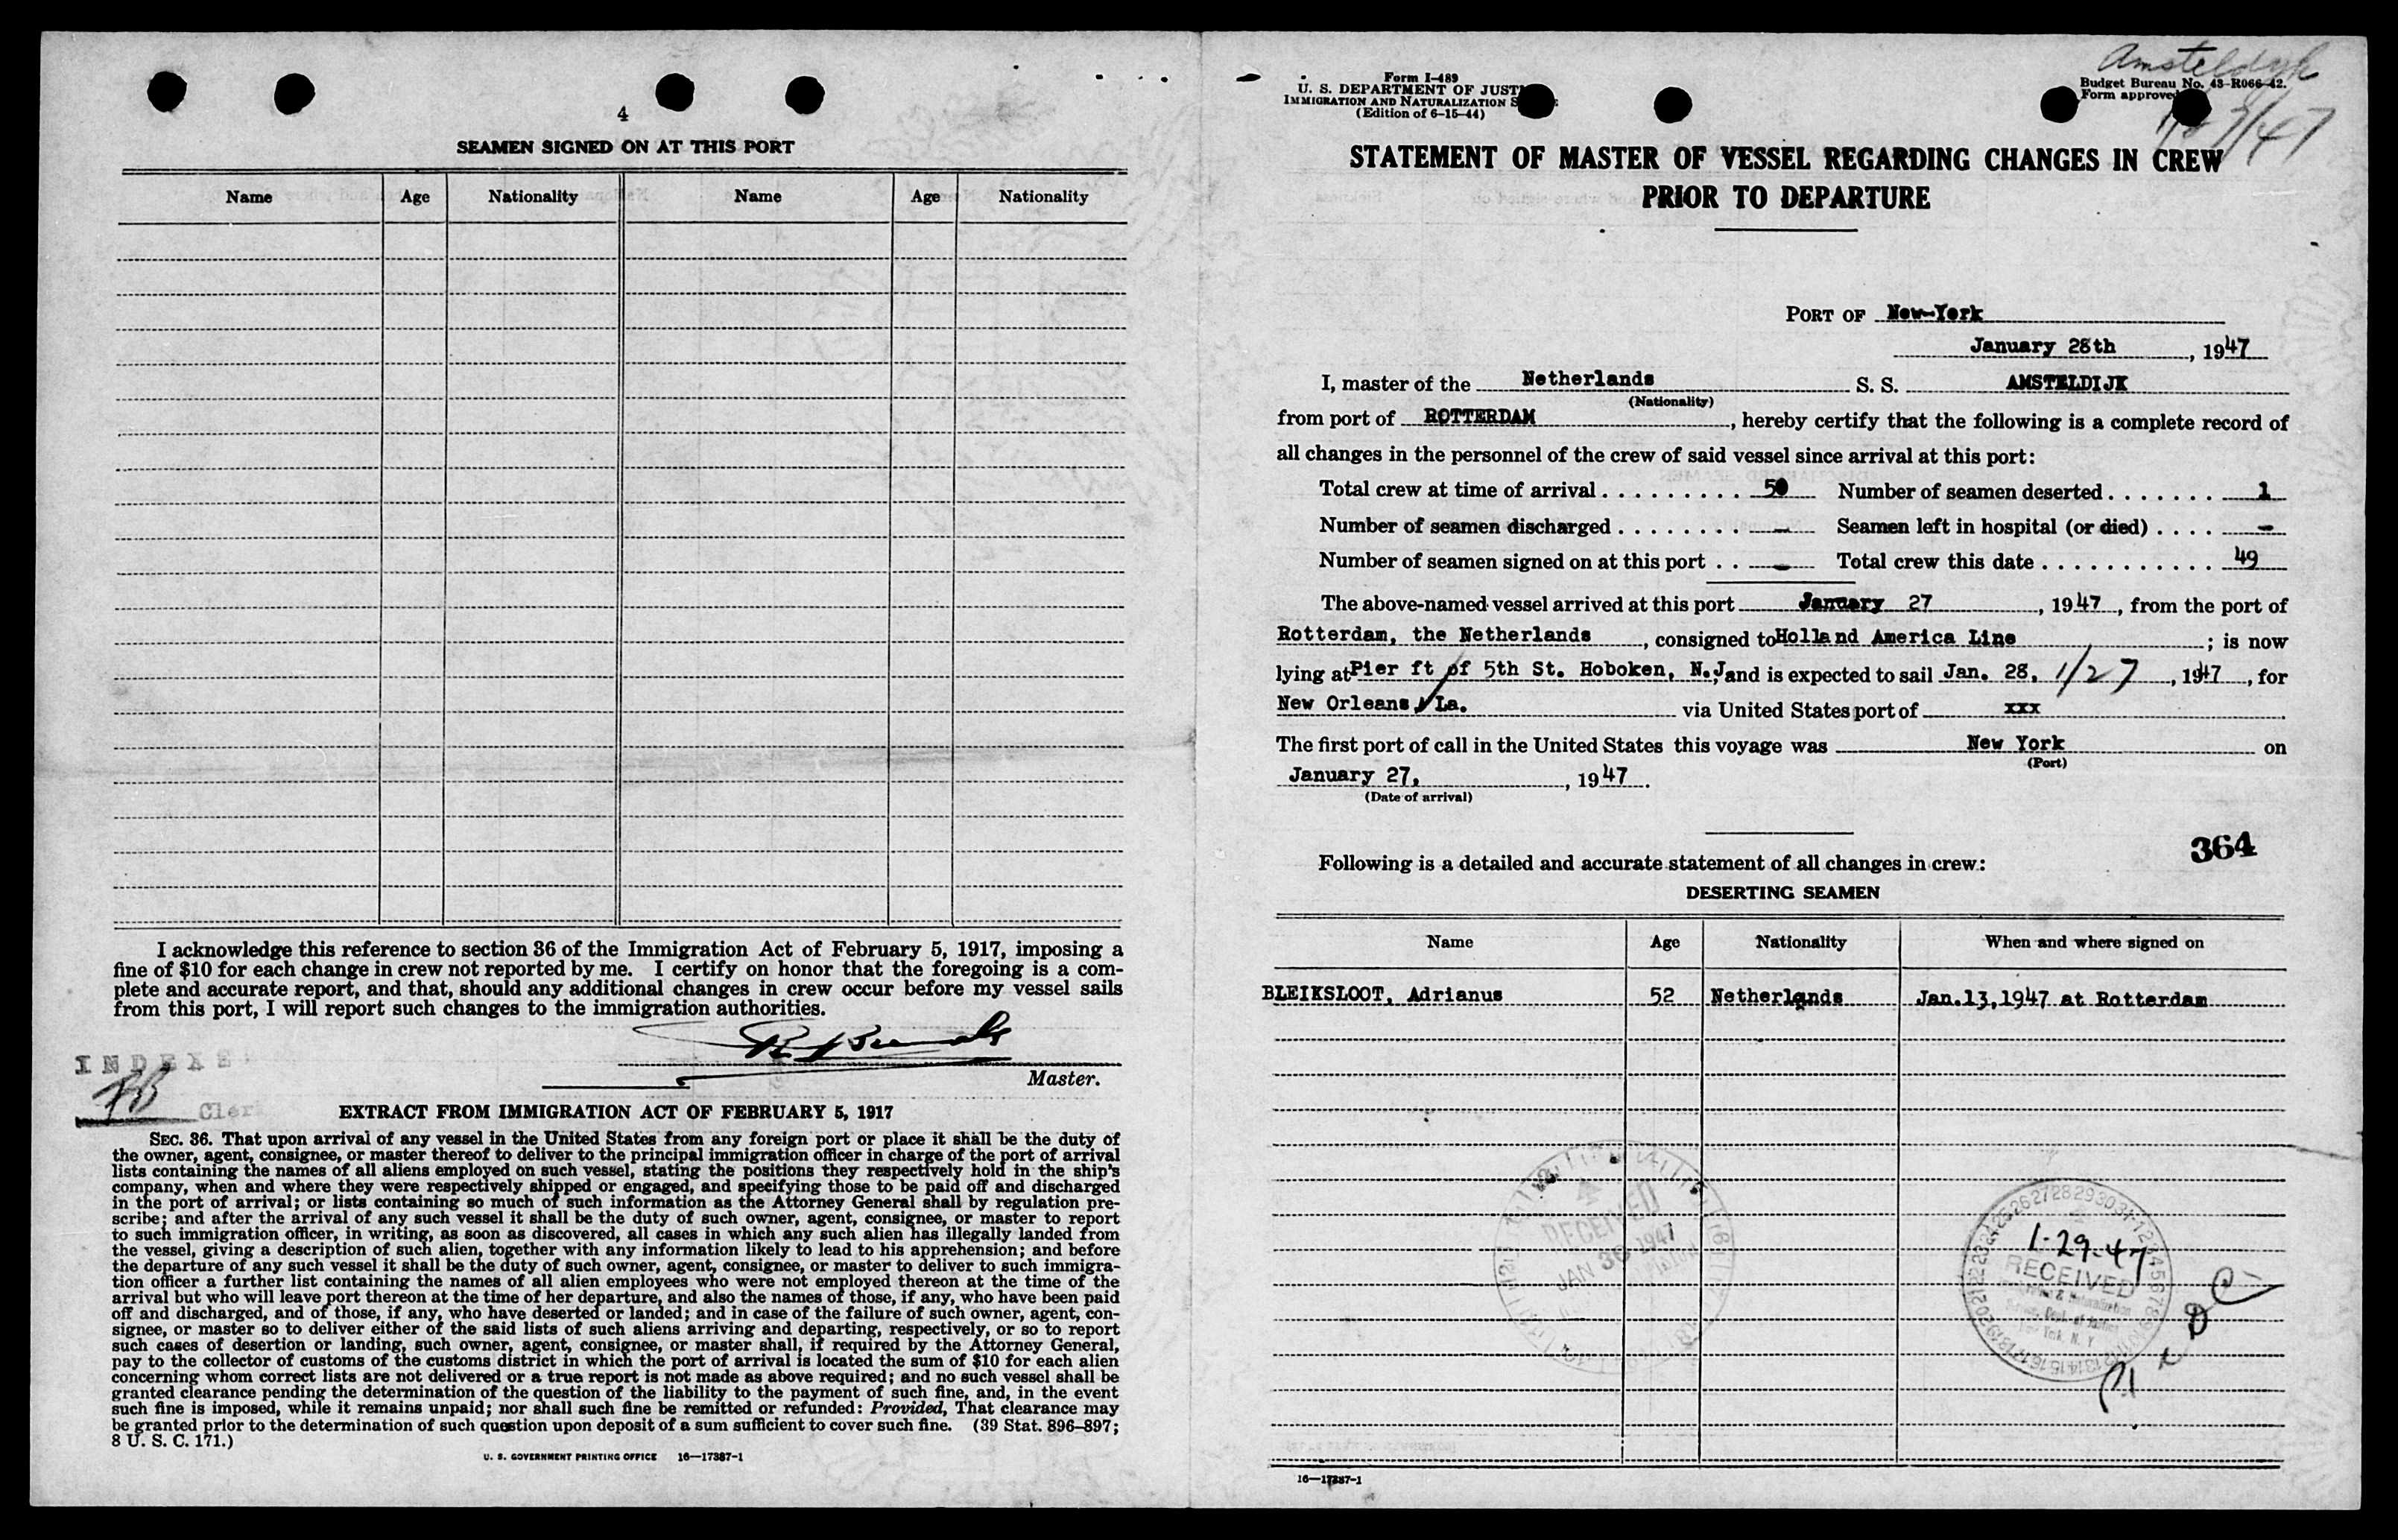 4
SEAMEN SIGNED ON AT THIS PORT
Name Age Nationality Name Age Nationality
I acknowledge this reference to section 36 of the Immigration Act of February 5, 1917, imposing a
fine of $10 for each change in crew not reported by me. I certify on honor that the foregoing is a com-
plete and accurate report, and that, should any additional changes in crew occur before my vessel sails
from this port, I will report such changes to the immigration authorities.
Master.
INDEXE
Cler
EXTRACT FROM IMMIGRATION ACT OF FEBRUARY 5, 1917
SEC. 36. That upon arrival of any vessel in the United States from any foreign port or place it shall be the duty of
the owner, agent, consignee, or master thereof to deliver to the principal immigration officer in charge of the port of arrival
lists containing the names of all aliens employed on such vessel, stating the positions they respectively hold in the ship's
company, when and where they were respectively shipped or engaged, and specifying those to be paid off and discharged
in the port of arrival; or lists containing so much of such information as the Attorney General shall by regulation pre-
scribe; and after the arrival of any such vessel it shall be the duty of such owner, agent, consignee, or master to report
to such immigration officer, in writing, as soon as discovered, all cases in which any such alien has illegally landed from
the vessel, giving a description of such alien, together with any information likely to lead to his apprehension; and before
the departure of any such vessel it shall be the duty of such owner, agent, consignee, or master to deliver to such immigra-
tion officer a further list containing the names of all alien employees who were not employed thereon at the time of the
arrival but who will leave port thereon at the time of her departure, and also the names of those, if any, who have been paid
off and discharged, and of those, if any, who have deserted or landed; and in case of the failure of such owner, agent, con-
signee, or master so to deliver either of the said lists of such aliens arriving and departing, respectively, or so to report
such cases of desertion or landing, such owner, agent, consignee, or master shall, if required by the Attorney General,
pay to the collector of customs of the customs district in which the port of arrival is located the sum of $10 for each alien
concerning whom correct lists are not delivered or a true report is not made as above required; and no such vessel shall be
granted clearance pending the determination of the question of the liability to the payment of such fine, and, in the event
such fine is imposed, while it remains unpaid; nor shall such fine be remitted or refunded: Provided, That clearance may
be granted prior to the determination of such question upon deposit of a sum sufficient to cover such fine. (39 Stat. 896–897;
8 U. S. C. 171.)
U. S. GOVERNMENT PRINTING OFFICE 16—17387-1
Amsteldyk
Form I-489
U. S. DEPARTMENT OF JUST
IMMIGRATION AND NATURALIZATION S
(Edition of 6-15-44)
Budget Bureau No. 43-R066-42.
Form approve
STATEMENT OF MASTER OF VESSEL REGARDING CHANGES IN CREW
PRIOR TO DEPARTURE
PORT OF New-York
January 28th, 1947
I, master of the Netherlands S. S. AMSTELDIJK
(Nationality)
from port of ROTTERDAM, hereby certify that the following is a complete record of
all changes in the personnel of the crew of said vessel since arrival at this port:
Total crew at time of arrival . . . . . . . . . 50 Number of seamen deserted . . . . . . . 1
Number of seamen discharged . . . . . . . . - Seamen left in hospital (or died) . . . . -
Number of seamen signed on at this port . . - Total crew this date . . . . . . . . . . . . 49
The above-named vessel arrived at this port January 27, 1947, from the port of
Rotterdam, the Netherlands, consigned to Holland America Line; is now
lying at Pier ft of 5th St. Hoboken, N.J, and is expected to sail Jan. 28, 1/27, 1947, for
New Orleans, La. via United States port of xxx
The first port of call in the United States this voyage was New York on
(Port)
January 27, 1947.
(Date of arrival)
364
Following is a detailed and accurate statement of all changes in crew:
DESERTING SEAMEN
Name Age Nationality When and where signed on
BLEIKSLOOT, Adrianus 52 Netherlands Jan.13,1947 at Rotterdam
RECEIVED
JAN 30 1947
1-29-47
RECEIVED
16—17387-1